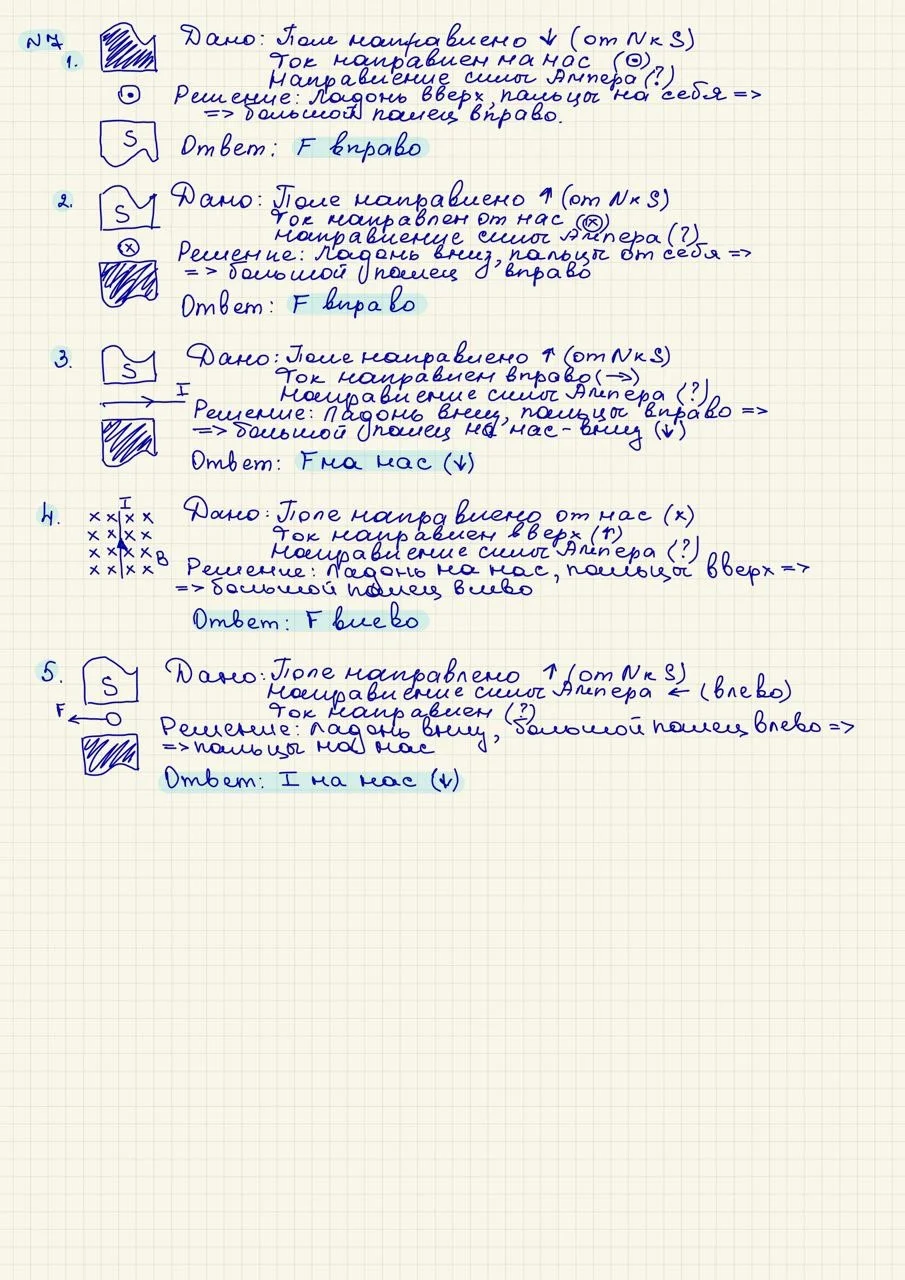 N7
1.
Дано: Поле направлено ↓ (от N к S)
Ток направлен на нас (⊙)
Направление силы Ампера (?)
Решение: Ладонь вверх, пальцы на себя =>
=> большой палец вправо.
S
Ответ: F вправо
2.
S
Дано: Поле направлено ↑ (от N к S)
Ток направлен от нас (⊗)
Направление силы Ампера (?)
Решение: Ладонь вниз, пальцы от себя =>
=> большой палец вправо
Ответ: F вправо
3.
S
I
Дано: Поле направлено ↑ (от N к S)
Ток направлен вправо (→)
Направление силы Ампера (?)
Решение: Ладонь вниз, пальцы вправо =>
=> большой палец на нас - вниз (↓)
Ответ: F на нас (↓)
4.
I
x x x x
x x x x
x x x x B
x x x x
Дано: Поле направлено от нас (x)
Ток направлен вверх (↑)
Направление силы Ампера (?)
Решение: Ладонь на нас, пальцы вверх =>
=> большой палец влево
Ответ: F влево
5.
S
F
Дано: Поле направлено ↑ (от N к S)
Направление силы Ампера ← (влево)
Ток направлен (?)
Решение: Ладонь вниз, большой палец влево =>
=> пальцы на нас
Ответ: I на нас (↓)